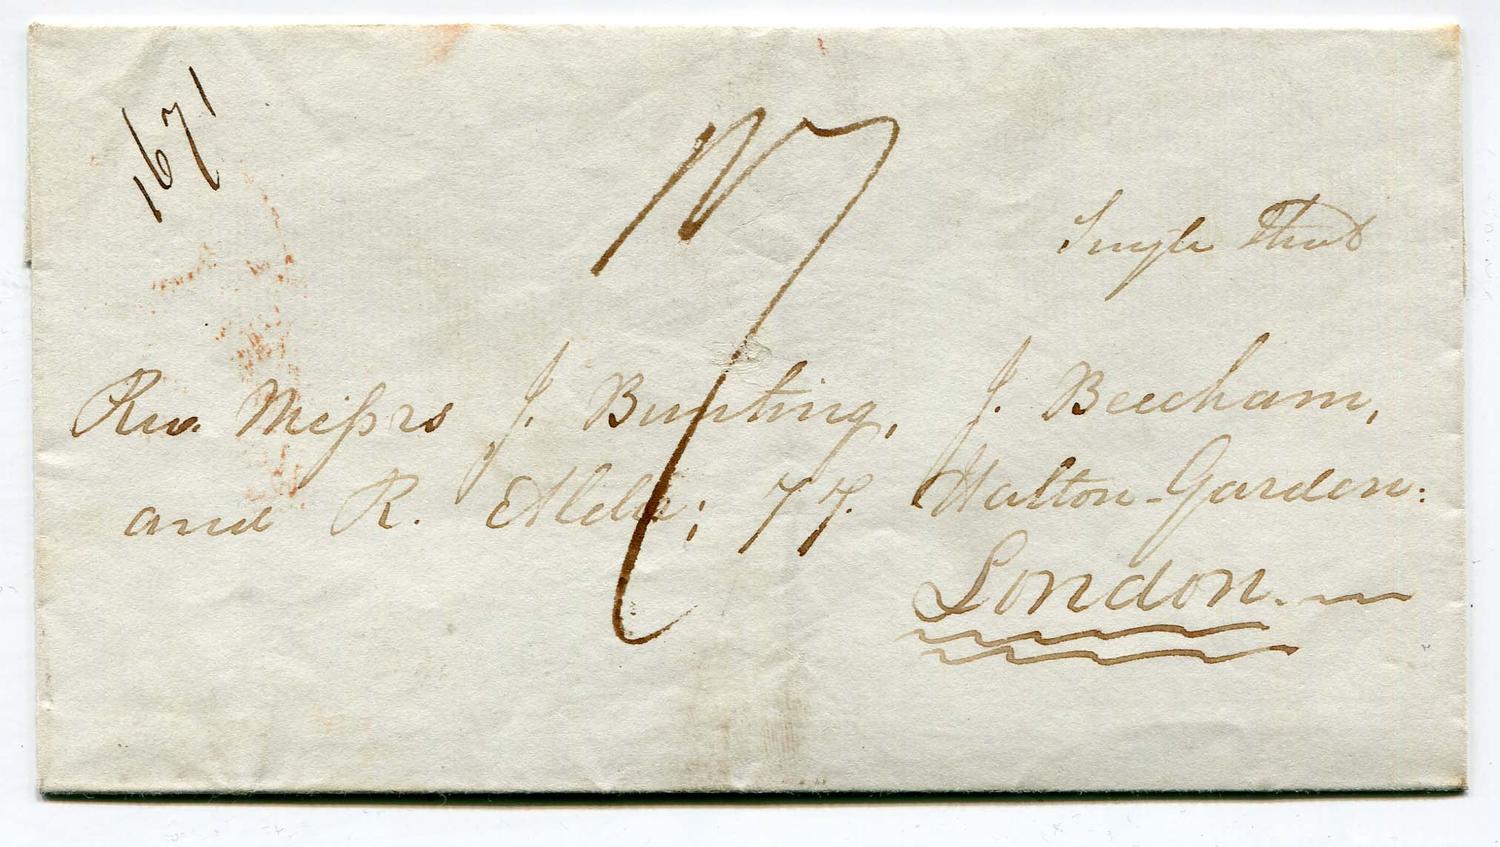 167/
Single Sheet
Rev. Messrs J. Bunting, J. Beecham,
and R. Alder; 77. Hatton-Garden:
London.